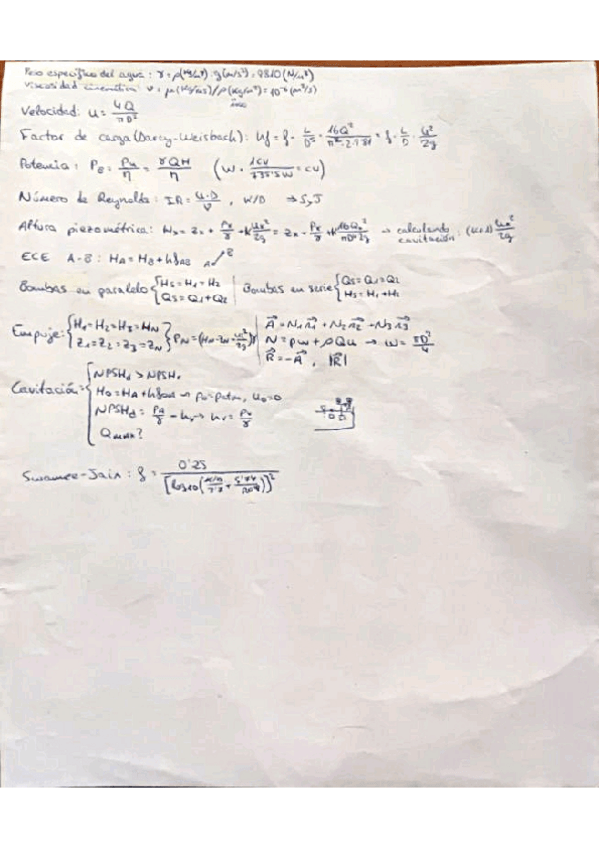 Peso específico del agua: γ = ρ(kg/m³) · g(m/s²) = 9810 (N/m³)
Viscosidad cinemática ν = μ(kg/ms)/ρ(kg/m³) = 10⁻⁶ (m²/s)
Velocidad: u = 4Q/πD²
Factor de carga (Darcy-Weisbach): hf = f · L/D⁵ · 16Q²/π²·2·9'81 = f · L/D · u²/2g
Potencia: PB = Pu/η = γQH/η (W · 1CV/735'5W = CV)
Número de Reynolds: IR = u·D/ν, K/D → S-J
Altura piezométrica: → calculando cavitación:
ECE A-B: HA = HB + hfAB A B
Bombas en paralelo { H5 = H1 = H2 | Bombas en serie { Q5 = Q1 = Q2
Q5 = Q1 + Q2 H5 = H1 + H2
Empuje: { H1 = H2 = H3 = HN
z1 = z2 = z3 = zN } PN = (HN - zN - u²/2g)γ
A = N1n1 + N2n2 + N3n3
N = pw + ρQu → w = πD²/4
R = -A, |R|
Cavitación = { NPSHd > NPSHr
H0 = HA + hf0A → p0 = patm, u0 = 0
NPSHd =
Qmax?
Swamee-Jain: f = 0'25/[log10(K/D/3'7 + 5'74/IR^0'9)]²